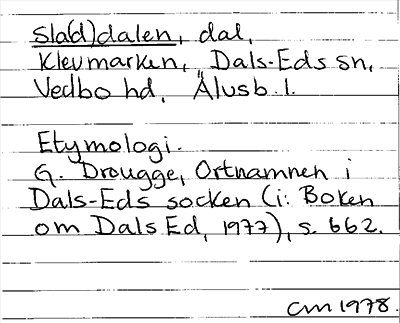 Sla(d)dalen, dal,
Klevmarken, Dals-Eds sn,
Vedbo hd, Älvsb. l.
Etymologi.
G. Drougge, Ortnamnen i
Dals-Eds socken (i: Boken
om Dals Ed, 1977), s. 662.
CM 1978.